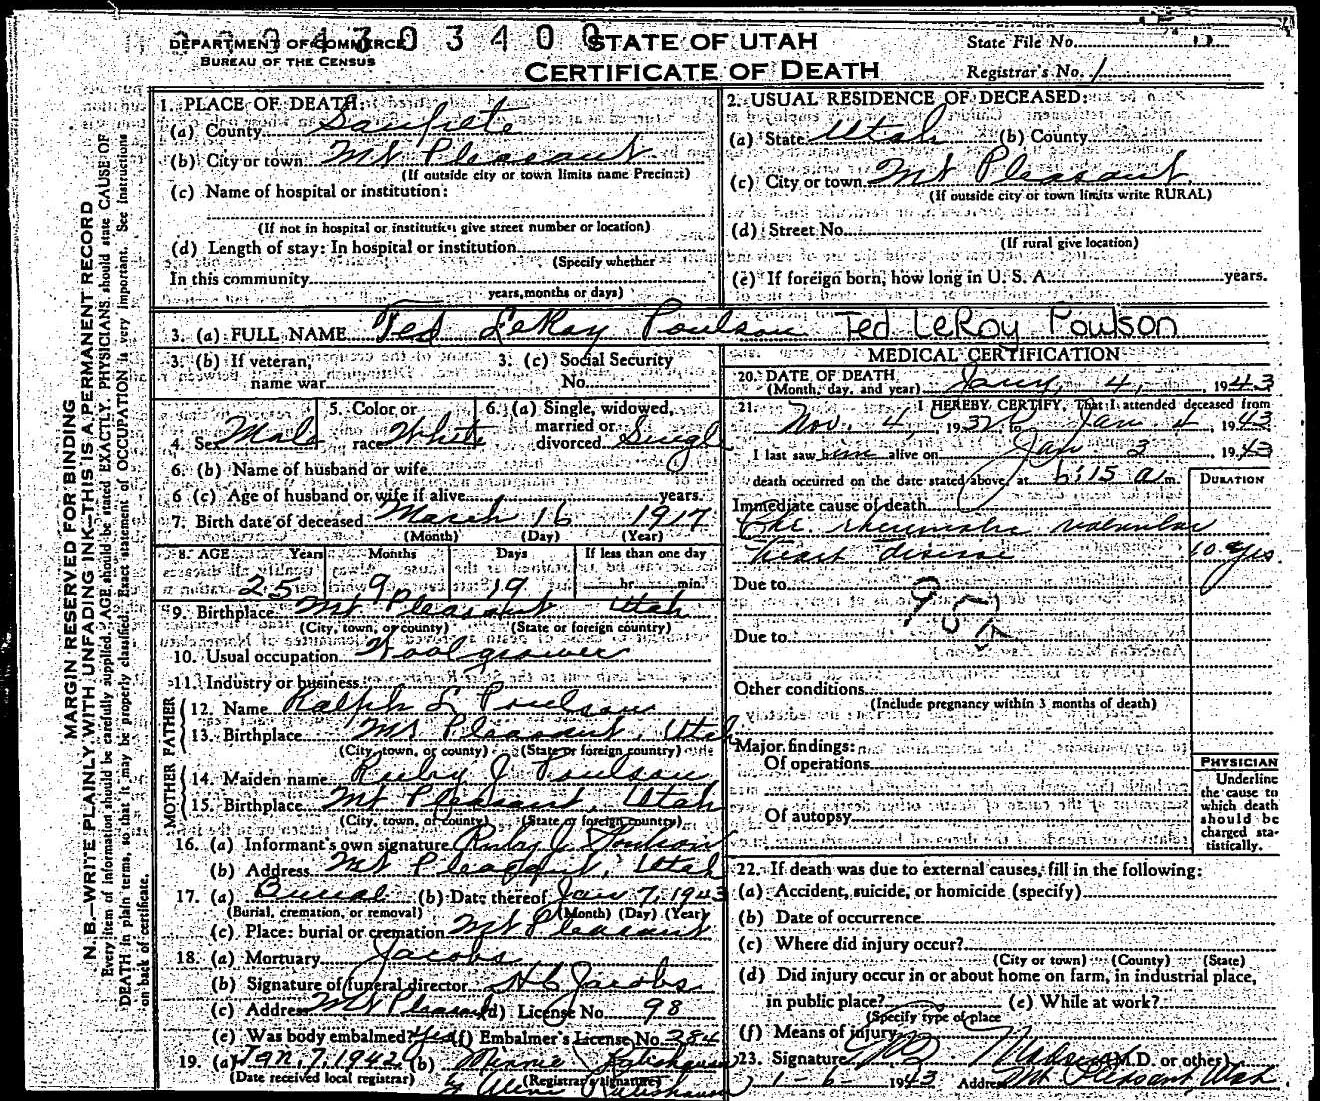 DEPARTMENT OF COMMERCE
BUREAU OF THE CENSUS
STATE OF UTAH
CERTIFICATE OF DEATH
State File No.
Registrar's No. 1
MARGIN RESERVED FOR BINDING
N. B.—WRITE PLAINLY WITH UNFADING INK—THIS IS A PERMANENT RECORD
Every item of information should be carefully supplied. AGE should be stated EXACTLY. PHYSICIANS should state CAUSE OF
DEATH in plain terms, so that it may be properly classified. Exact statement of OCCUPATION is very important. See instructions
on back of certificate.
1. PLACE OF DEATH:
(a) County Sanpete
(b) City or town Mt Pleasant
(If outside city or town limits name Precinct)
(c) Name of hospital or institution:
(If not in hospital or institution give street number or location)
(d) Length of stay: In hospital or institution
(Specify whether
In this community
years, months or days)
2. USUAL RESIDENCE OF DECEASED:
(a) State Utah (b) County
(c) City or town Mt Pleasant
(If outside city or town limits write RURAL)
(d) Street No.
(If rural give location)
(e) If foreign born, how long in U. S. A. years.
3. (a) FULL NAME Ted LeRoy Poulson Ted LeRoy Poulson
3. (b) If veteran, name war
3. (c) Social Security No.
4. Sex Male
5. Color or race White
6. (a) Single, widowed, married or divorced Single
6. (b) Name of husband or wife
6 (c) Age of husband or wife if alive years.
7. Birth date of deceased March 16 1917
(Month) (Day) (Year)
8. AGE Years Months Days If less than one day
25 9 19 hr. min.
9. Birthplace Mt Pleasant Utah
(City, town, or county) (State or foreign country)
10. Usual occupation Woolgrower
11. Industry or business
FATHER
12. Name Ralph L Poulson
13. Birthplace Mt Pleasant, Utah
(City, town, or county) (State or foreign country)
MOTHER
14. Maiden name Ruby J Poulson
15. Birthplace Mt Pleasant, Utah
(City, town, or county) (State or foreign country)
16. (a) Informant's own signature Ruby J Poulson
(b) Address Mt Pleasant, Utah
17. (a) Burial (b) Date thereof Jan 7, 1943
(Burial, cremation, or removal) (Month) (Day) (Year)
(c) Place: burial or cremation Mt Pleasant
18. (a) Mortuary Jacobs
(b) Signature of funeral director H C Jacobs
(c) Address Mt Pleasant (d) License No. 98
(e) Was body embalmed? Yes (f) Embalmer's License No. 384
19. (a) Jan. 7, 1942 (b) Minnie
(Date received local registrar) (Registrar's signature)
MEDICAL CERTIFICATION
20. DATE OF DEATH
(Month, day, and year) Jany, 4, 1943
21. I HEREBY CERTIFY, That I attended deceased from
Nov. 4, 1932 to Jan 4, 1943
I last saw him alive on Jan 3, 1943
death occurred on the date stated above, at 6:15 a m.
DURATION
Immediate cause of death
Chr rheumatic valvular
heart disease 10 yrs
Due to
95
Due to
Other conditions
(Include pregnancy within 3 months of death)
Major findings:
Of operations
Of autopsy
PHYSICIAN
Underline
the cause to
which death
should be
charged sta-
tistically.
22. If death was due to external causes, fill in the following:
(a) Accident, suicide, or homicide (specify)
(b) Date of occurrence
(c) Where did injury occur?
(City or town) (County) (State)
(d) Did injury occur in or about home on farm, in industrial place,
in public place? (e) While at work?
(Specify type of place
(f) Means of injury
23. Signature Madsen (M.D. or other)
1-6-1943 Address Mt Pleasant, Utah